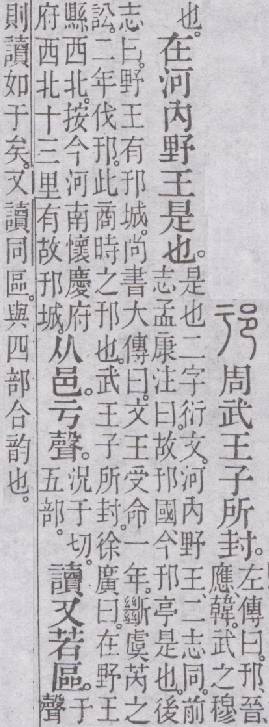 邘周武王子所封。左傳曰。邘、晉
應、韓。武之穆
也。
在河內野王是也。是也二字衍文。河內野王。二志同。前
志孟康注曰。故邘國今邘亭是也。後
志曰。野王有邘城。尚書大傳曰。文王受命一年。斷虞芮之
訟。二年伐邘。此商時之邘也。武王子所封。徐廣曰。在野王
縣西北。按今河南懷慶府
府西北十三里有故邘城。
从邑。亏聲。況于切。
五部。
讀又若區。于
聲
則讀如于矣。又讀同區。與四部合韵也。